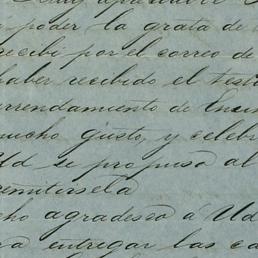 poder la grata de
recibi por el correo de
haber recibido el testi
arrendamiento de Encin
mucho gusto, y celebr
Ud se propuso al
remitirsela
cho agradesco á Ud
ra entregar las ca